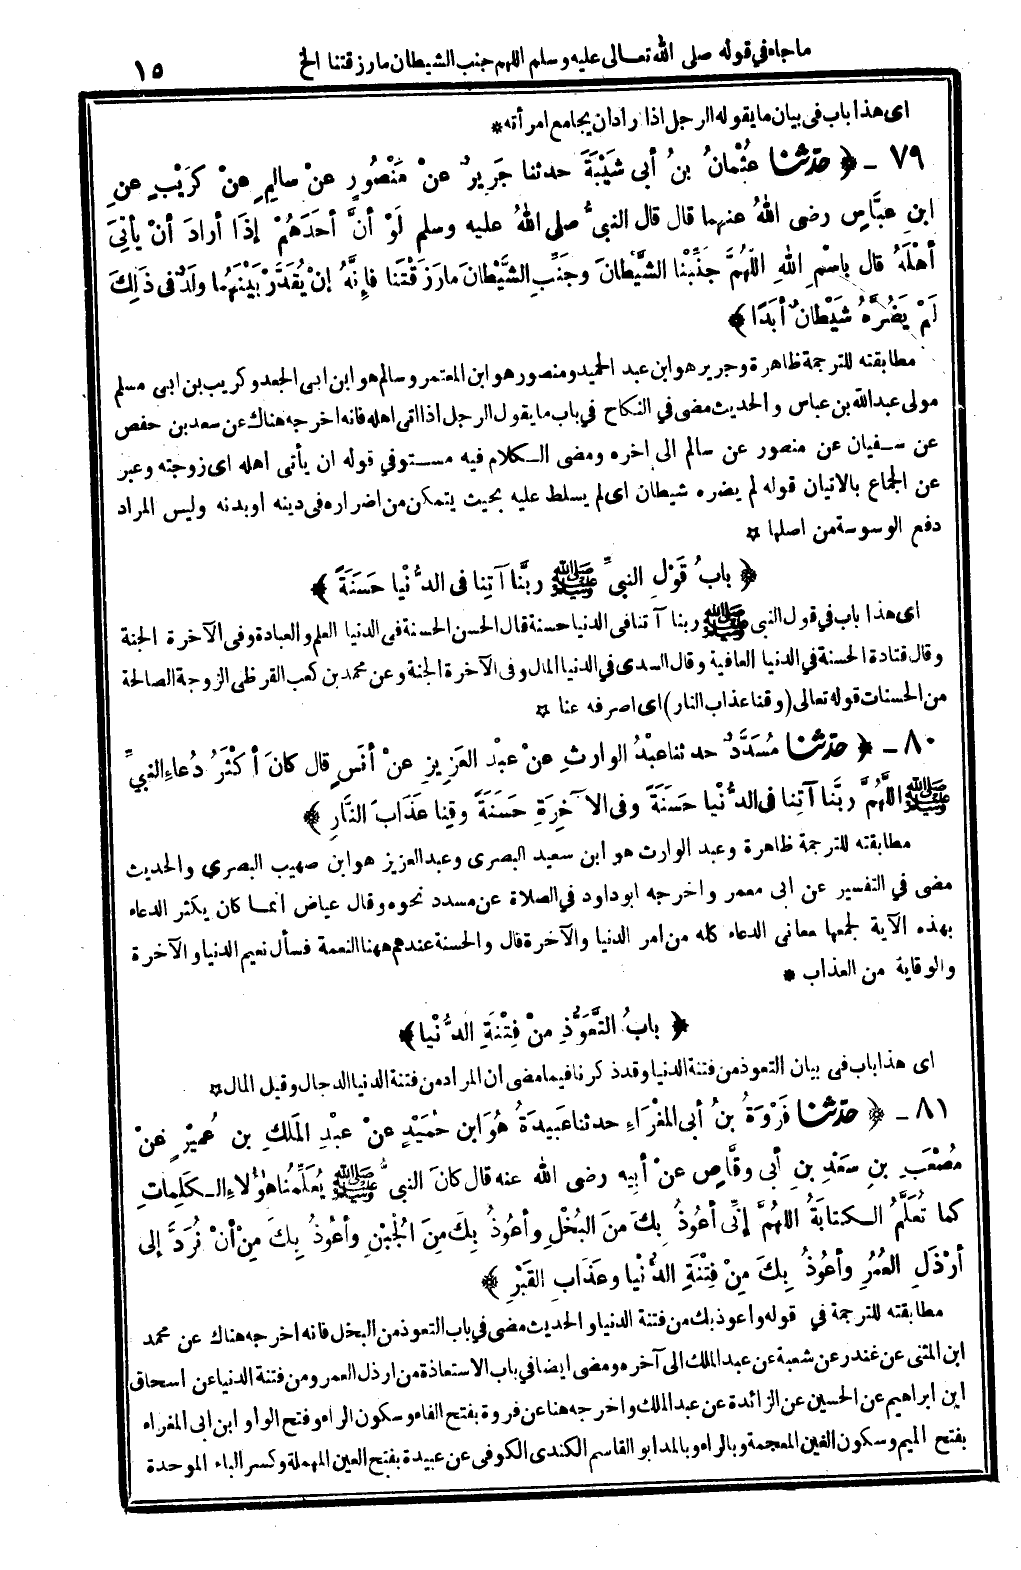 ما جاء في قوله صلى الله تعالى عليه وسلم اللهم جنب الشيطان ما رزقتنا الخ
١٥
اى هذا باب فى بيان ما يقوله الرجل اذا اراد ان يجامع امرأته *
٧٩ - ﴿ حدثنا عُثْمانُ بنُ أبى شَيْبَةَ حدثنا جَرِيرٌ عنْ مَنْصُورٍ عنْ سالِمٍ عنْ كُرَيْبٍ عنِ
ابنِ عبَّاسٍ رضى اللهُ عنهما قال قال النبىُّ صلى اللهُ عليه وسلم لَوْ أنَّ أحَدَهُمْ إذَا أرادَ أنْ يأْتِىَ
أهْلَهُ قال باسْمِ اللهِ اللّهُمَّ جَنِّبْنا الشَّيْطانَ وجَنِّبِ الشَّيْطانَ ما رَزَقْتَنا فإِنَّهُ إنْ يُقَدَّرْ بَيْنَهُما ولَدٌ فى ذَلِكَ
لَمْ يَضُرَّهُ شَيْطانٌ أبَدًا ﴾
مطابقته للترجمة ظاهرة وجرير هو ابن عبد الحميد ومنصور هو ابن المعتمر وسالم هو ابن ابى الجعد وكريب بن ابى مسلم
مولى عبد الله بن عباس والحديث مضى في النكاح في باب ما يقول الرجل اذا اتى اهله فانه اخرجه هناك عن سعد بن حفص
عن سفيان عن منصور عن سالم الى اخره ومضى الكلام فيه مستوفي قوله ان يأتى اهله اى زوجته وعبر
عن الجماع بالاتيان قوله لم يضره شيطان اى لم يسلط عليه بحيث يتمكن من اضراره فى دينه او بدنه وليس المراد
دفع الوسوسة من اصلها ✡
﴿ بابُ قَوْلِ النبىِّ ﷺ ربَّنا آتِنا فى الدُّنْيا حَسَنَةً ﴾
اى هذا باب في قول النبى ﷺ ربنا آتنا فى الدنيا حسنة قال الحسن الحسنة فى الدنيا العلم والعبادة وفى الآخرة الجنة
وقال قتادة الحسنة في الدنيا العافية وقال السدى في الدنيا المال وفى الآخرة الجنة وعن محمد بن كعب القرظى الزوجة الصالحة
من الحسنات قوله تعالى (وقنا عذاب النار) اى اصرفه عنا ✡
٨٠ - ﴿ حدثنا مُسَدَّدٌ حدثنا عبْدُ الوارِثِ عنْ عبْدِ العَزِيزِ عنْ أنَسٍ قال كانَ أكْثَرُ دُعاءِ النبىِّ
ﷺ اللَّهُمَّ ربَّنا آتِنا فى الدُّنْيا حَسَنَةً وفى الآخِرَةِ حَسَنَةً وقِنا عَذَابَ النَّارِ ﴾
مطابقته للترجمة ظاهرة وعبد الوارث هو ابن سعيد البصرى وعبد العزيز هو ابن صهيب البصري والحديث
مضى في التفسير عن ابى معمر واخرجه ابو داود في الصلاة عن مسدد نحوه وقال عياض انما كان يكثر الدعاء
بهذه الآية لجمعها معانى الدعاء كله من امر الدنيا والآخرة قال والحسنة عندهم ههنا النعمة فسأل نعيم الدنيا والآخرة
والوقاية من العذاب *
﴿ بابُ التَّعَوُّذِ منْ فِتْنَةِ الدُّنْيا ﴾
اى هذا باب فى بيان التعوذ من فتنة الدنيا وقد ذكرنا فيما مضى ان المراد من فتنة الدنيا الدجال وقيل المال ✡
٨١ - ﴿ حدثنا فَرْوَةُ بنُ أبى المَغْرَاءِ حدثنا عَبِيدَةُ هُوَ ابن حُمَيْدٍ عنْ عبْدِ المَلكِ بن عُميْرٍ عنْ
مُصْعَبِ بنِ سَعْدِ بنِ أبى وقَّاصٍ عنْ أبِيه رضى الله عنه قال كانَ النبىُّ ﷺ يُعَلِّمُنا هؤُلاءِ الكَلِماتِ
كما تُعَلَّمُ الكتابَةُ اللهُمَّ إنِّى أعُوذُ بِكَ منَ البُخْلِ وأعُوذُ بِكَ مِنَ الجُبْنِ وأعُوذُ بِكَ مِنْ أنْ نُرَدَّ إلى
أرْذَلِ العُمُرِ وأعُوذُ بِكَ مِنْ فِتْنَةِ الدُّنْيا وعَذَابِ القَبْرِ ﴾
مطابقته للترجمة في قوله واعوذ بك من فتنة الدنيا والحديث مضى في باب التعوذ من البخل فانه اخرجه هناك عن محمد
ابن المثنى عن غندر عن شعبة عن عبد الملك الى آخره ومضى ايضا في باب الاستعاذة من ارذل العمر ومن فتنة الدنيا عن اسحاق
ابن ابراهيم عن الحسين عن الزائدة عن عبد الملك واخرجه هنا عن فروة بفتح الفاء وسكون الراء وفتح الواو ابن ابى المغراء
بفتح الميم وسكون الغين المعجمة وبالراء وبالمد ابو القاسم الكندى الكوفى عن عبيدة بفتح العين المهملة وكسر الباء الموحدة